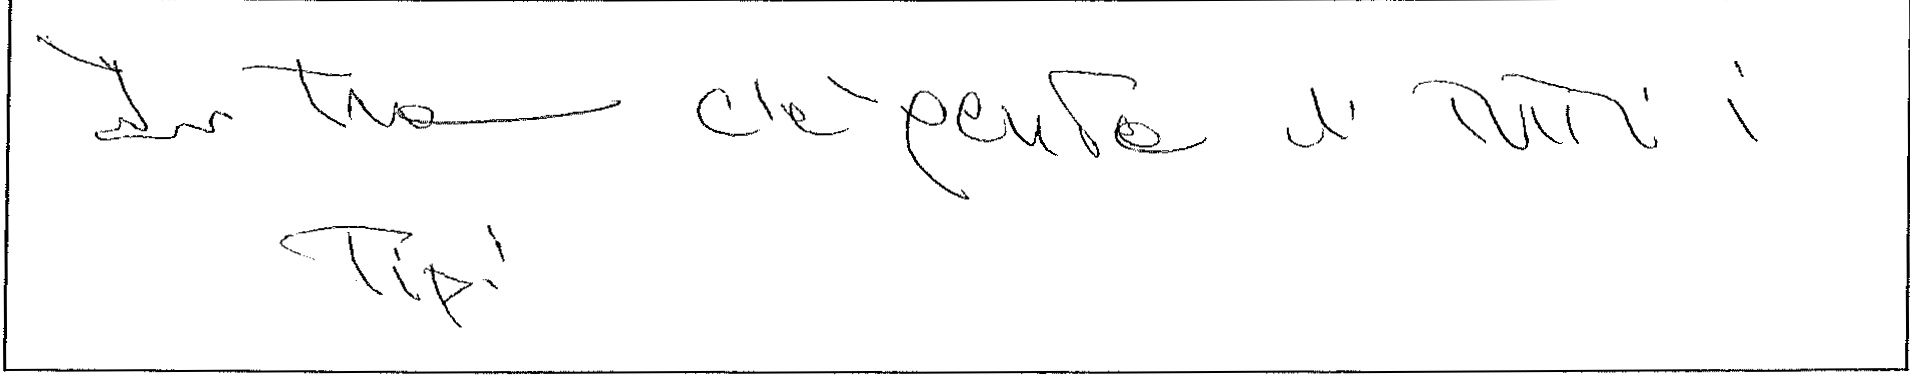 In Tno c'è gente di tutti i
Tipi